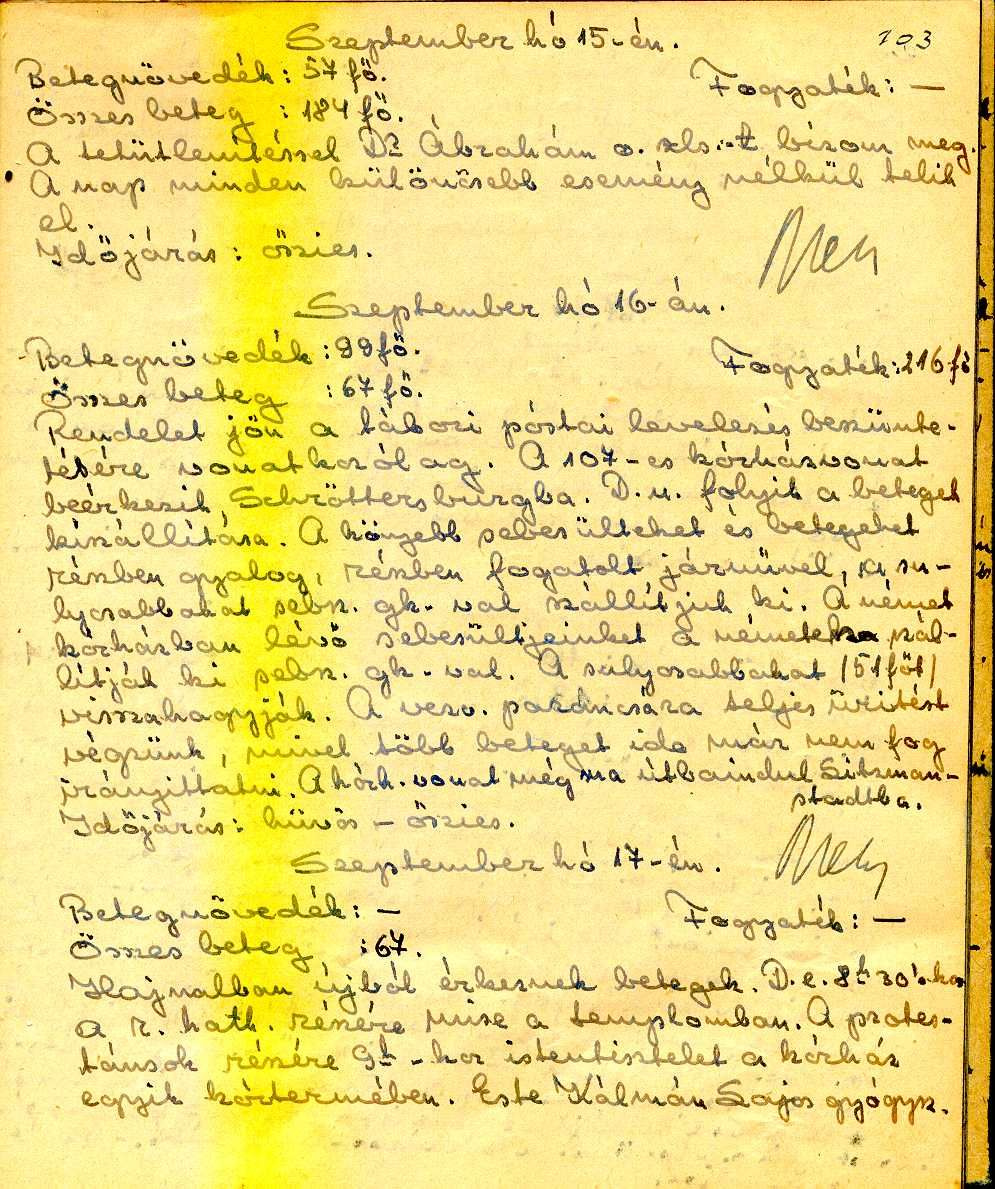 Szeptember hó 15-én. 103
Betegnövedék: 57 fő. Fogyaték: —
Összes beteg : 184 fő.
A tetűtlenítéssel Dr Ábrahám o. xls.-t bízom meg.
A nap minden különösebb esemény nélkül telik
el.
Időjárás: őszies.
Szeptember hó 16-án.
Betegnövedék: 99 fő. Fogyaték: 216 fő
Összes beteg : 67 fő.
Rendelet jön a tábori póstai levelezés beszünte-
tésére vonatkozólag. A 107-es kórházvonat
beérkezik Schröttersburgba. D.u. folyik a beteget
kiszállítása. A könyebb sebesülteket és betegeket
részben gyalog, részben fogatolt járművel, a su-
lyosabbakat sebsz. gk.-val szállítjuk ki. A német
kórházban lévő sebesültjeinket a németek szál-
lítják ki sebsz. gk.-val. A sulyosabbakat /51 főt/
visszahagyják. A vezv. parancsára teljes ürítést
végzünk, mivel több beteget ide már nem fog
irányíttatni. A kórh. vonat még ma útbaindul Litzman-
stadtba.
Időjárás: hüvös – őszies.
Szeptember hó 17-én.
Betegnövedék: — Fogyaték: —
Összes beteg : 67.
Hajnalban újból érkeznek betegek. D.e. 8h 30'-kor
a r. kath. részére mise a templomban. A protes-
tánsok részére 9h-kor istentisztelet a kórház
egyik kórtermében. Este Kálmán Lajos gyógysz.